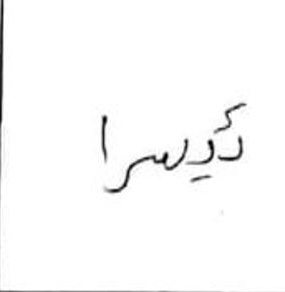 دٔیسرا